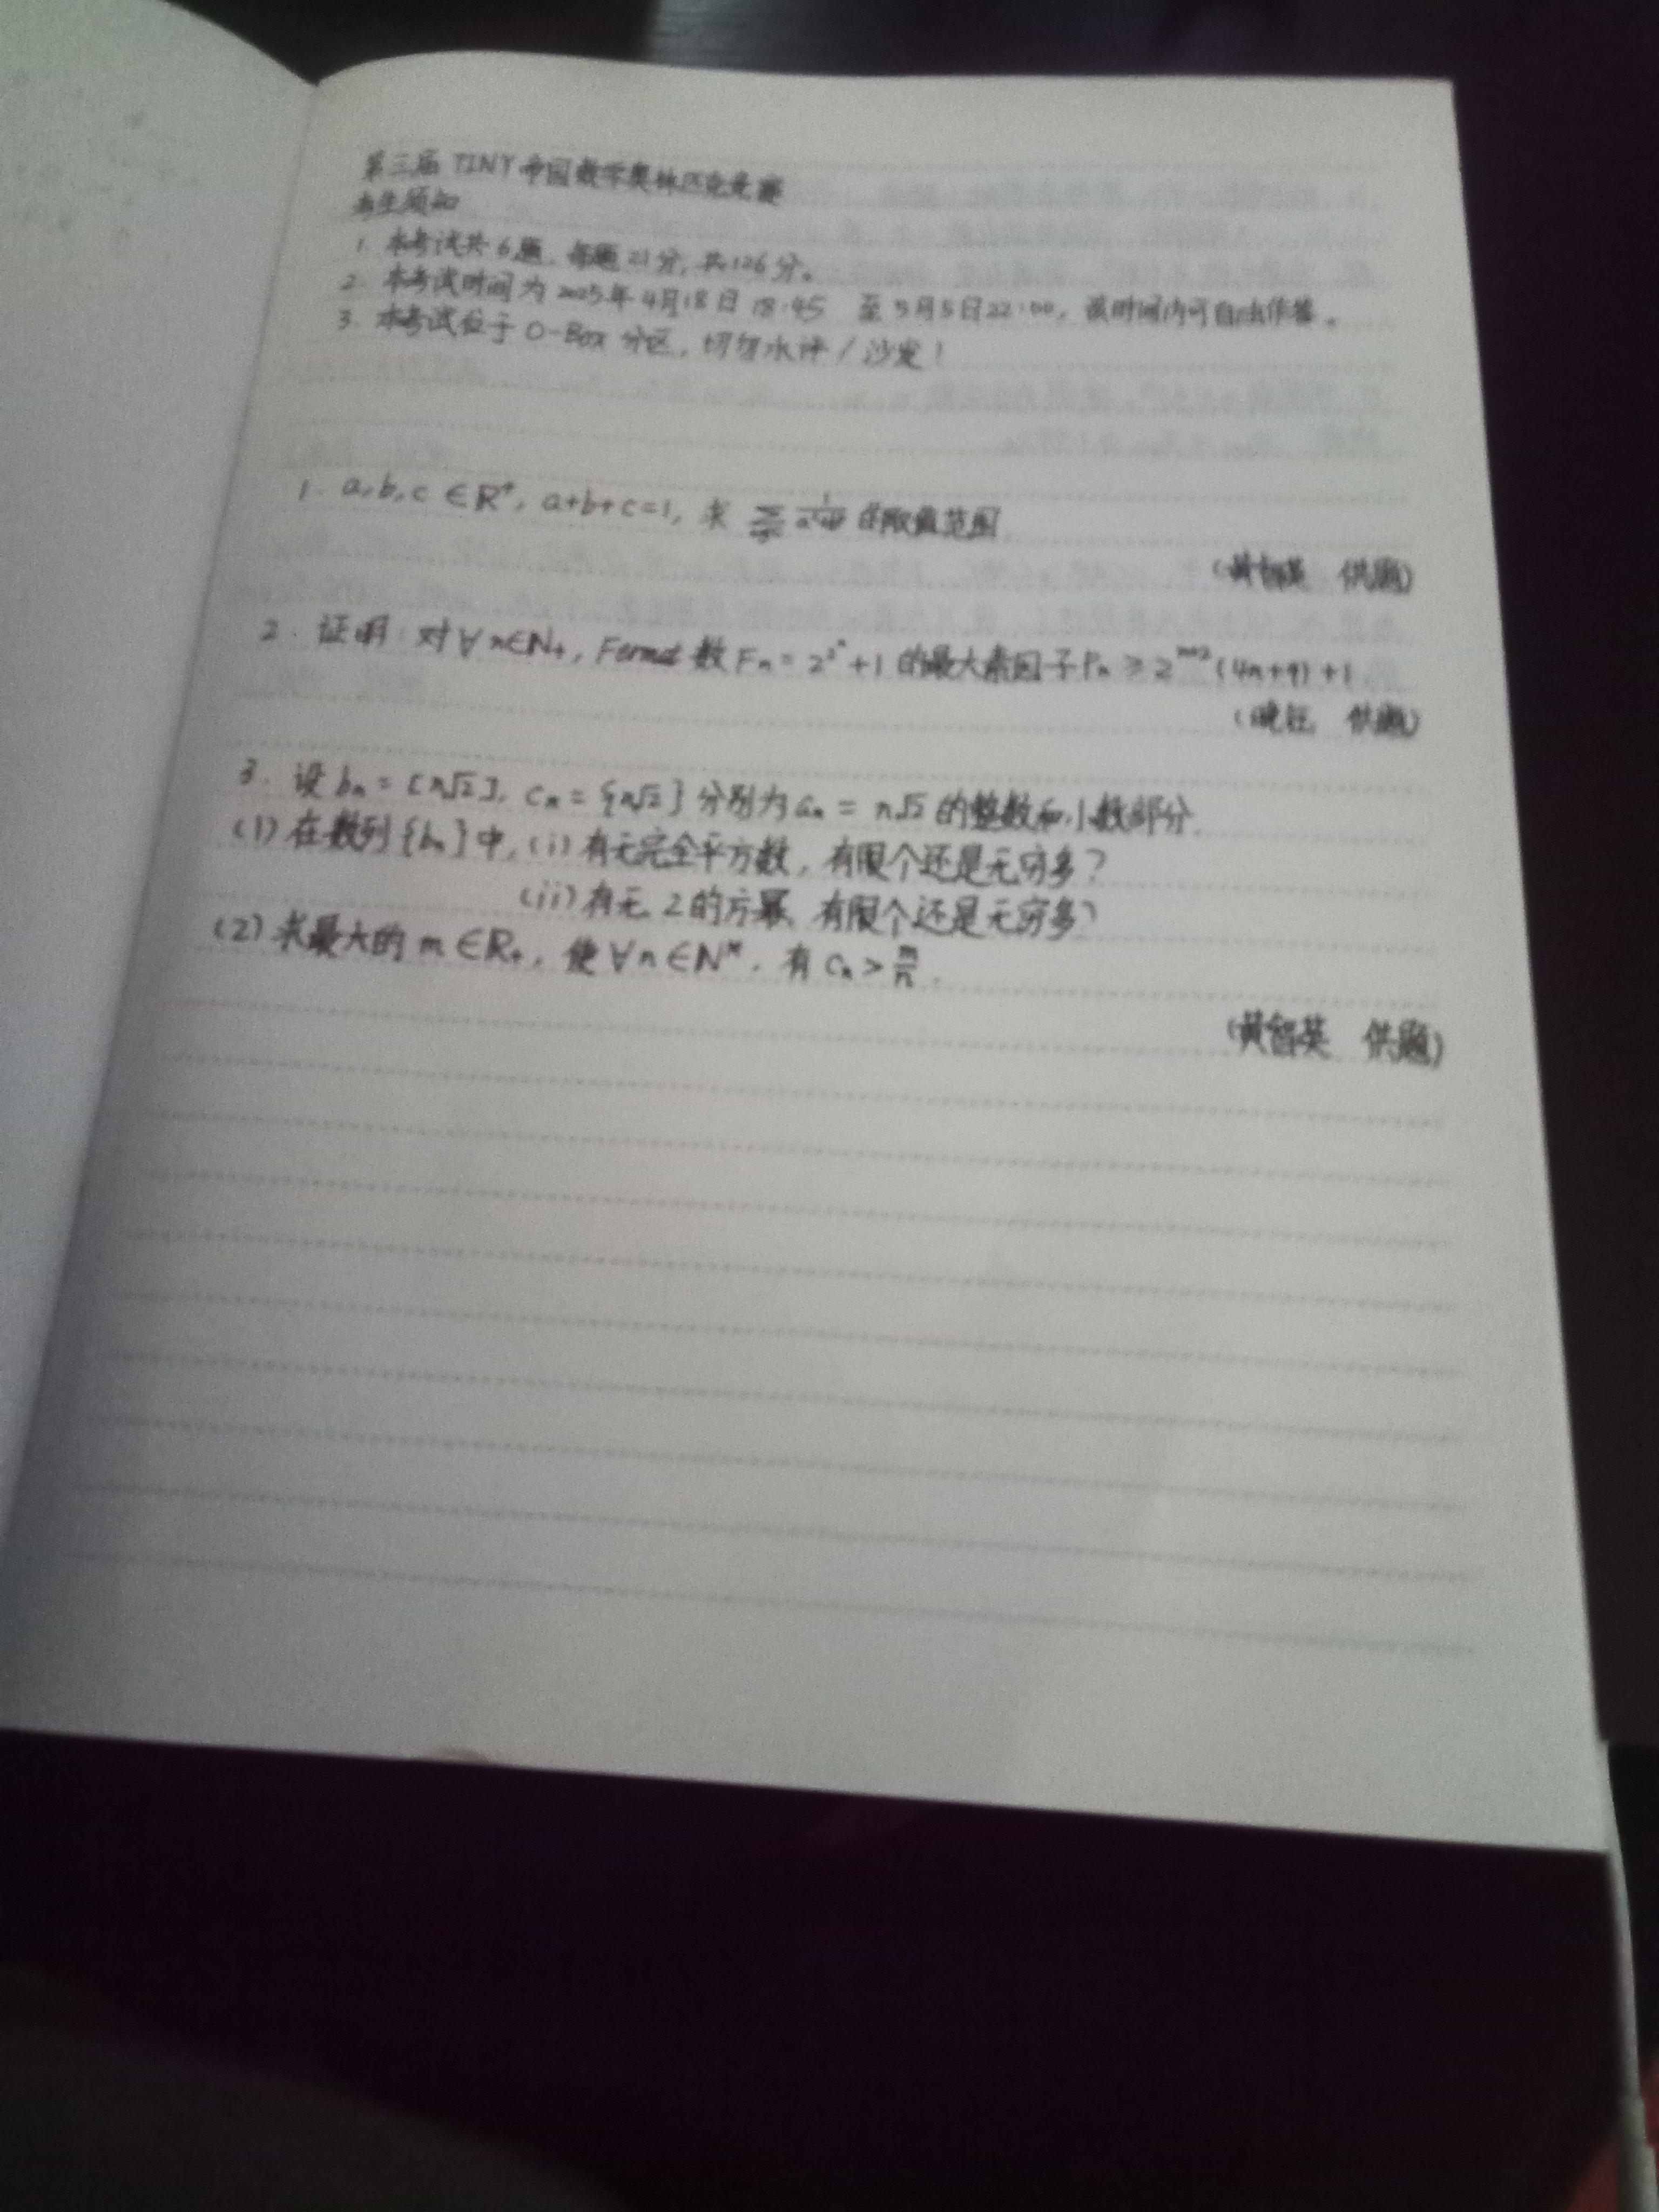 第三届 TINY 中国数学奥林匹克竞赛
考生须知
1. 本考试共6题,每题21分,共126分。
2. 本考试时间为2025年4月18日 18:45 至5月5日22:00,该时间内可自由作答。
3. 本考试位于 O-Box 分区,切勿水评/沙发!
1. a,b,c ∈R⁺, a+b+c=1, 求 的取值范围.
(黄智英 供题)
2. 证明:对∀n∈N₊, Fermat 数 Fₙ = 2^{2^n}+1 的最大素因子 Pₙ ≥ 2^{n+2}(4n+9)+1.
供题)
3. 设 bₙ = [n√2], cₙ = {n√2} 分别为 aₙ = n√2 的整数和小数部分.
(1) 在数列{bₙ}中, (i) 有无完全平方数, 有限个还是无穷多?
(ii) 有无 2的方幂, 有限个还是无穷多?
(2) 求最大的 m ∈R₊, 使 ∀n∈N*, 有 cₙ > m/n.
(黄智英 供题)